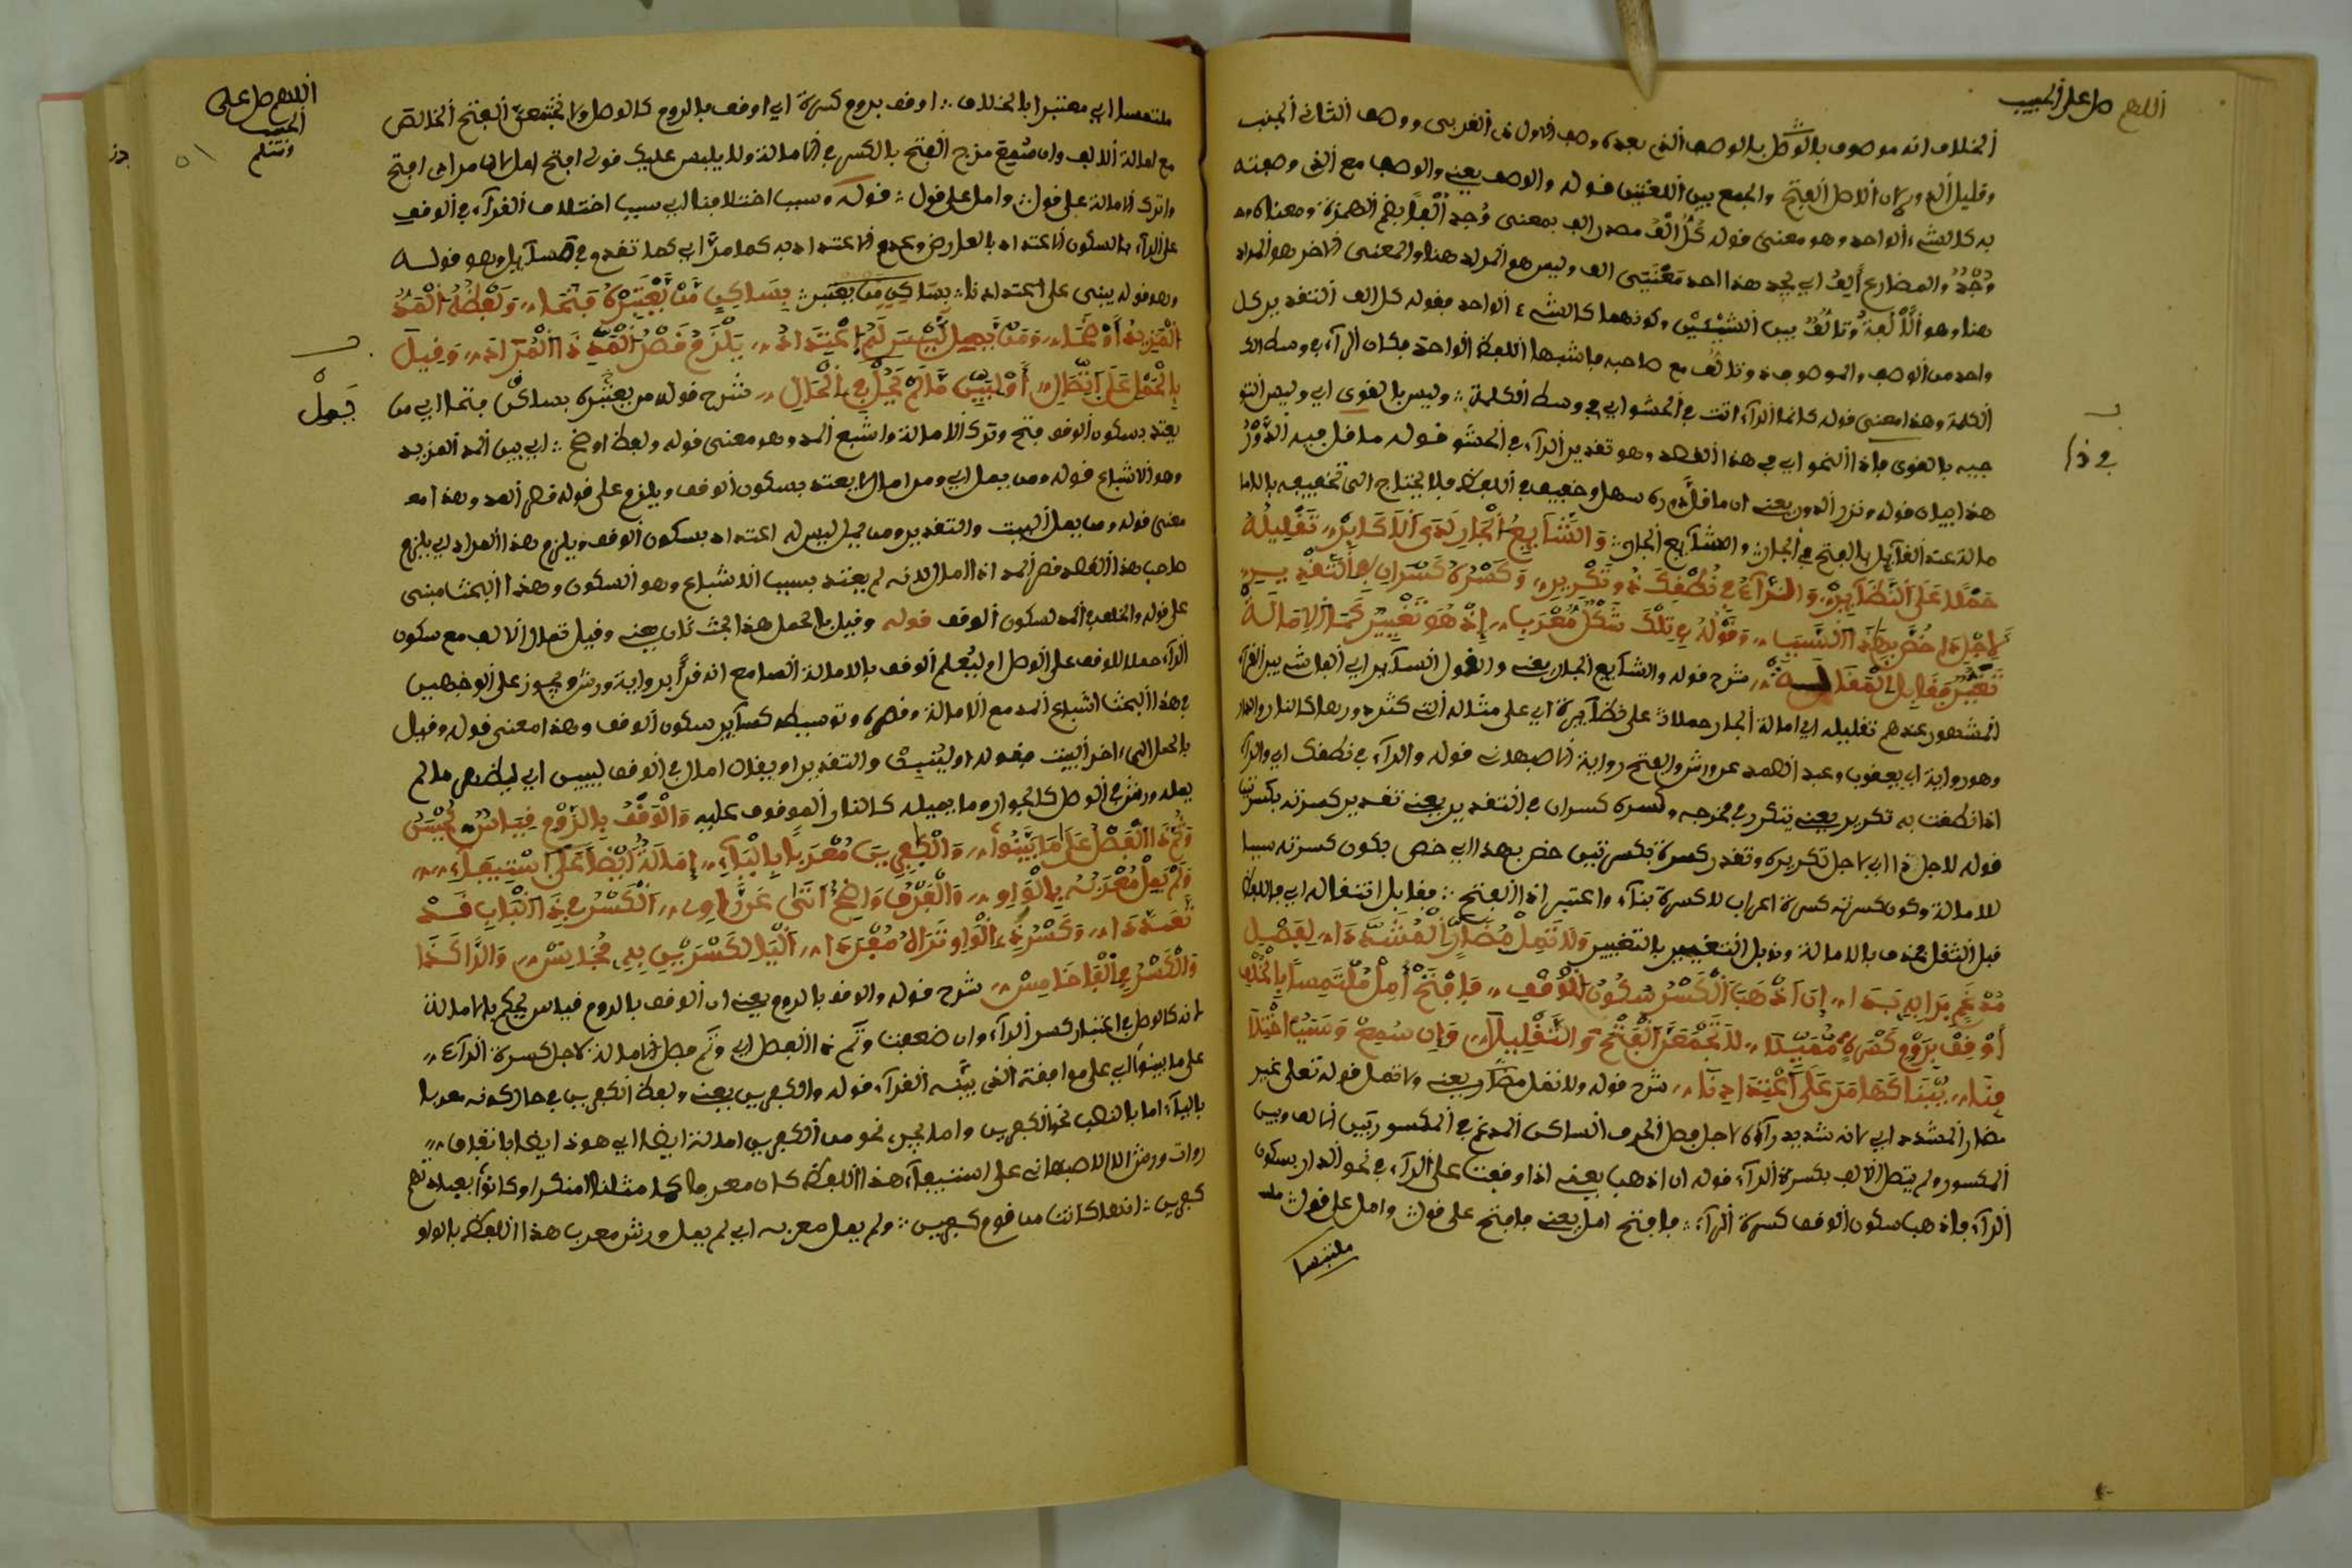 اللهم صل على الحبيب
الخلاف انه موصوف بالوصل بالوصف الذى بعده وصف الاول فى القربى ووصف الثانى الجنب
وقليل الدور لان الاصل الفتح والجمع بين اللغتين قوله والوصف يعنى والوصف مع الذى وصفته
به كالشىء الواحد وهو معنى قوله كل الف مصدر الف بمعنى وجد الفا بضم الهمزة ومعناه
وجد والمضارع أيف اى يجد هذا احد معنيى الف وليس هو المراد هنا والمعنى الاخر هو المراد
هنا وهو الألفة وتألف بين الشيئين وكونهما كالشىء الواحد فقوله كل الف التقدير كل
واحد من الوصف والموصوف وتالف مع صاحبه فاشبها اللفظ الواحد فكان الراء فى وسط
الكلمة وهذا معنى قوله كانما الراء اتت فى الحشو اى فى وسط الكلمة وليس بالقوى اى وليس
فيه بالقوى فاذا النحو اى فى هذا القصد وهو تقدير الراء فى الحشو قوله ما قل فيه الدور
هذا بيان قوله ونزر الدور يعنى ان ما قل دوره سهل وخفيف فى اللفظ فلا يحتاج الى تخفيفه بالاما
مالة عند القائل بالفتح فى الجار والشائع الجار والشايع الجار لدى الاكابر تقليله
حملا على النظاير والراء فى نطقك ذو تكرير وكسره كسران فى التقدير
لاجل ذا خص بهذا السبب وقوله فى تلك شكل معرب إذ هو تغيير كما الإمالة
تغير فقابل المقالة شرح قوله والشايع الجار يعنى والقول السائر اى الفاشى بين القراء
المشهور عندهم تقليله اى امالة الجار حملا على نظايره اى على مثاله التى كثر دورها كالنار والدار
وهو رواية ابى يعقوب وعبد الصمد عن ورش والفتح رواية الاصبهانى قوله والراء فى نطقك اى والراء
اذا نطقت به تكرير يعنى يتكرر فى مخرجه وكسره كسران فى التقدير يعنى تقدير كسرته بكسرتين
قوله لاجل ذا اى لاجل تكريره وتقدر كسرة بكسرتين خص بهذا اى خص بكون كسرته سببا
للامالة وكون كسرته كسرة اعراب لا كسرة بناء واعتبر اذ الفتح فقابل انتقاله اى فاللفظ
قبل النقل يخف بالامالة وقوبل التغيير بالتغيير ولا تمل مضار المشددا لفصل
مدغم برايه بدا إن أذهب الكسر سكون الوقف فافتح أمل ملتمسا بالخلف
أو قف بروم كسره مميلا لا تجمعن الفتح والتقليلا وإن سمع وسبب اختلا
فنا بيناكها مر على اعتدادنا شرح قوله ولا تمل مضار يعنى ولا تمل قوله تعلى غير
مضار المشدد اى لانه شديد راؤه لاجل فصل الحرف الساكن المدغم فى المكسور بين الالف وبين
المكسور ولم يتصل الالف بكسرة الراء قوله ان اذهب يعنى اذا وقفت على الراء فى نحو الدار بسكون
الراء فاذهب سكون الوقف كسرة الراء فافتح امل يعنى فافتح على قول وامل على قول
ملتمسا
فى ذا
اللهم صل على
الحبيب
وسلم
ملتمسا اى معتبرا بالخلاف او قف بروم كسره اى او قف بالروم كالوصل ولا تجمعن الفتح الخالص
مع امالة الالف وان سمع مزج الفتح بالكسر فى الامالة ولا يلبس عليك قولى افتح امل لان مرادى افتح
واترك الامالة على قول وامل على قول قوله وسبب اختلافنا اى سبب اختلاف القراء فى الوقف
على الراء بالسكون الاعتداد بالعارض وعدم الاعتداد به كما مر اى كما تقدم فى المسائل وهو قوله
وهو قوله يبنى على اعتدادنا بساكن من يعتبر بساكن من يعتبره فتحا ولفظه المد
المزيد أوضحا ومن يمل ليس له اعتداد يلزم قصر المد ذا المراد وقيل
بالحمل على اتصال أو ليبين ما لم يجل فى الحال شرح قوله من يعتبره بساكن فتحا اى من
يعتد بسكون الوقف فتح وترك الامالة واشبع المد وهو معنى قوله ولفظه اوضح اى بين المد المزيد
وهو الاشباع قوله ومن يمل اى ومن امال لا يعتد بسكون الوقف ويلزم على قوله قصر المد وهذا مع
معنى قوله ومن يمل البيت والتقدير ومن يمل ليس له اعتداد بسكون الوقف ويلزم هذا المراد اى يلزم
صاحب هذا القصد قصر المد اذا امال لانه لم يعتد بسبب الاشباع وهو السكون وهذا البحث مبنى
على قوله والخلف فى المد لسكون الوقف قوله وقيل بالحمل هذا بحث ثان يعنى وقيل تمال الالف مع سكون
الراء حملا للوقف على الوصل او ليعلم الوقف بالامالة السامع انه قرأ برواية ورش ويجوز على الوجهين
فى هذا البحث اشباع المد مع الامالة وقصره وتوسيطه كسائر سكون الوقف وهذا معنى قوله وقيل
بالحمل الى اخر البيت فقوله او ليبين والتقدير او يقال امال فى الوقف ليبين اى ليظهر ما لم
يمله ورش فى الوصل كالجوار وما يميله كالنار الموقوف عليه والوقف بالروم قياس يحبس
وثم ذا الفصل على ما بينوا والكافرين معربا بالياء إمالة أيضا على استيفاء
ولم يمل معربه بالواو والفرق واضح أتى عن راوى الكسر فى ذا الباب قد
تعددا وكسر ذى الواو تراه مفردا اليا لكسرين يلى مجانس والرا كذا
والكسر فى الفا خامس شرح قوله والوقف بالروم يعنى ان الوقف بالروم قياس يحكم بالامالة
لانه كالوصل فى اعتبار كسر الراء وان ضعفت وثم ذا الفصل اى وثم فصل الامالة لاجل كسرة الراء
على ما بينوا اى على موافقة الذى بينه القراء قوله والكافرين يعنى ولفظ الكافرين فى حال كونه معربا
بالياء اما بالنصب نحو الكافرين واما بجر نحو من الكافرين امالة ايضا اى هو ذا ايضا باتفاق
روات ورش الا الاصبهانى على استيفاء هذا اللفظ كان معرفا كما مثلنا او منكرا وكانوا بعبادتهم
كفرين انها كانت من قوم كفرين ولم يمل معربه اى لم يمل ورش معرب هذا اللفظ بالواو
يحمل